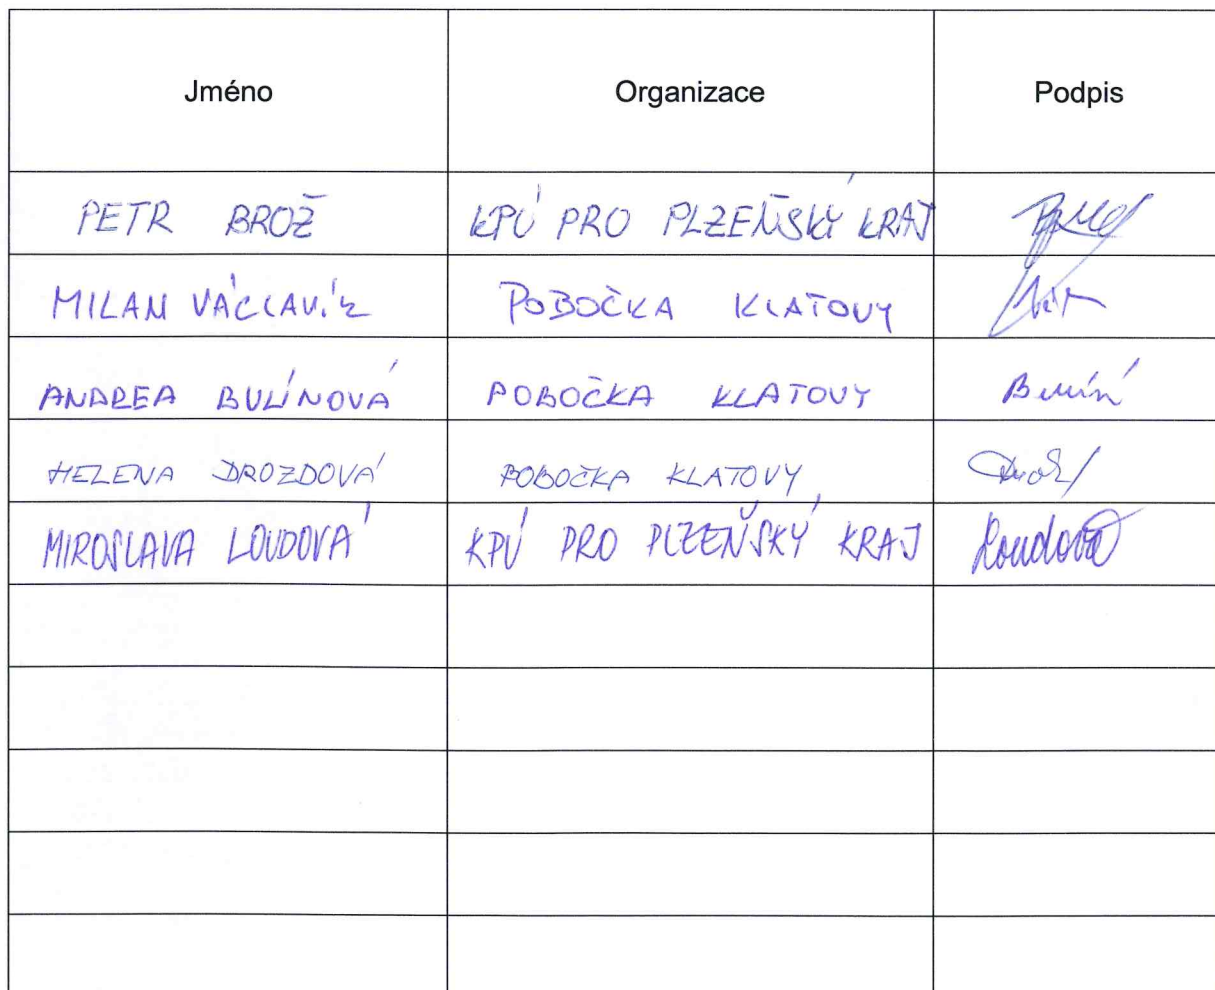 Jméno Organizace Podpis
PETR BROŽ KPÚ PRO PLZEŇSKÝ KRAJ
MILAN VÁCLAVÍK POBOČKA KLATOVY
ANDREA BULÍNOVÁ POBOČKA KLATOVY
HELENA DROZDOVÁ POBOČKA KLATOVY
MIROSLAVA LOUDOVÁ KPÚ PRO PLZEŇSKÝ KRAJ Loudová